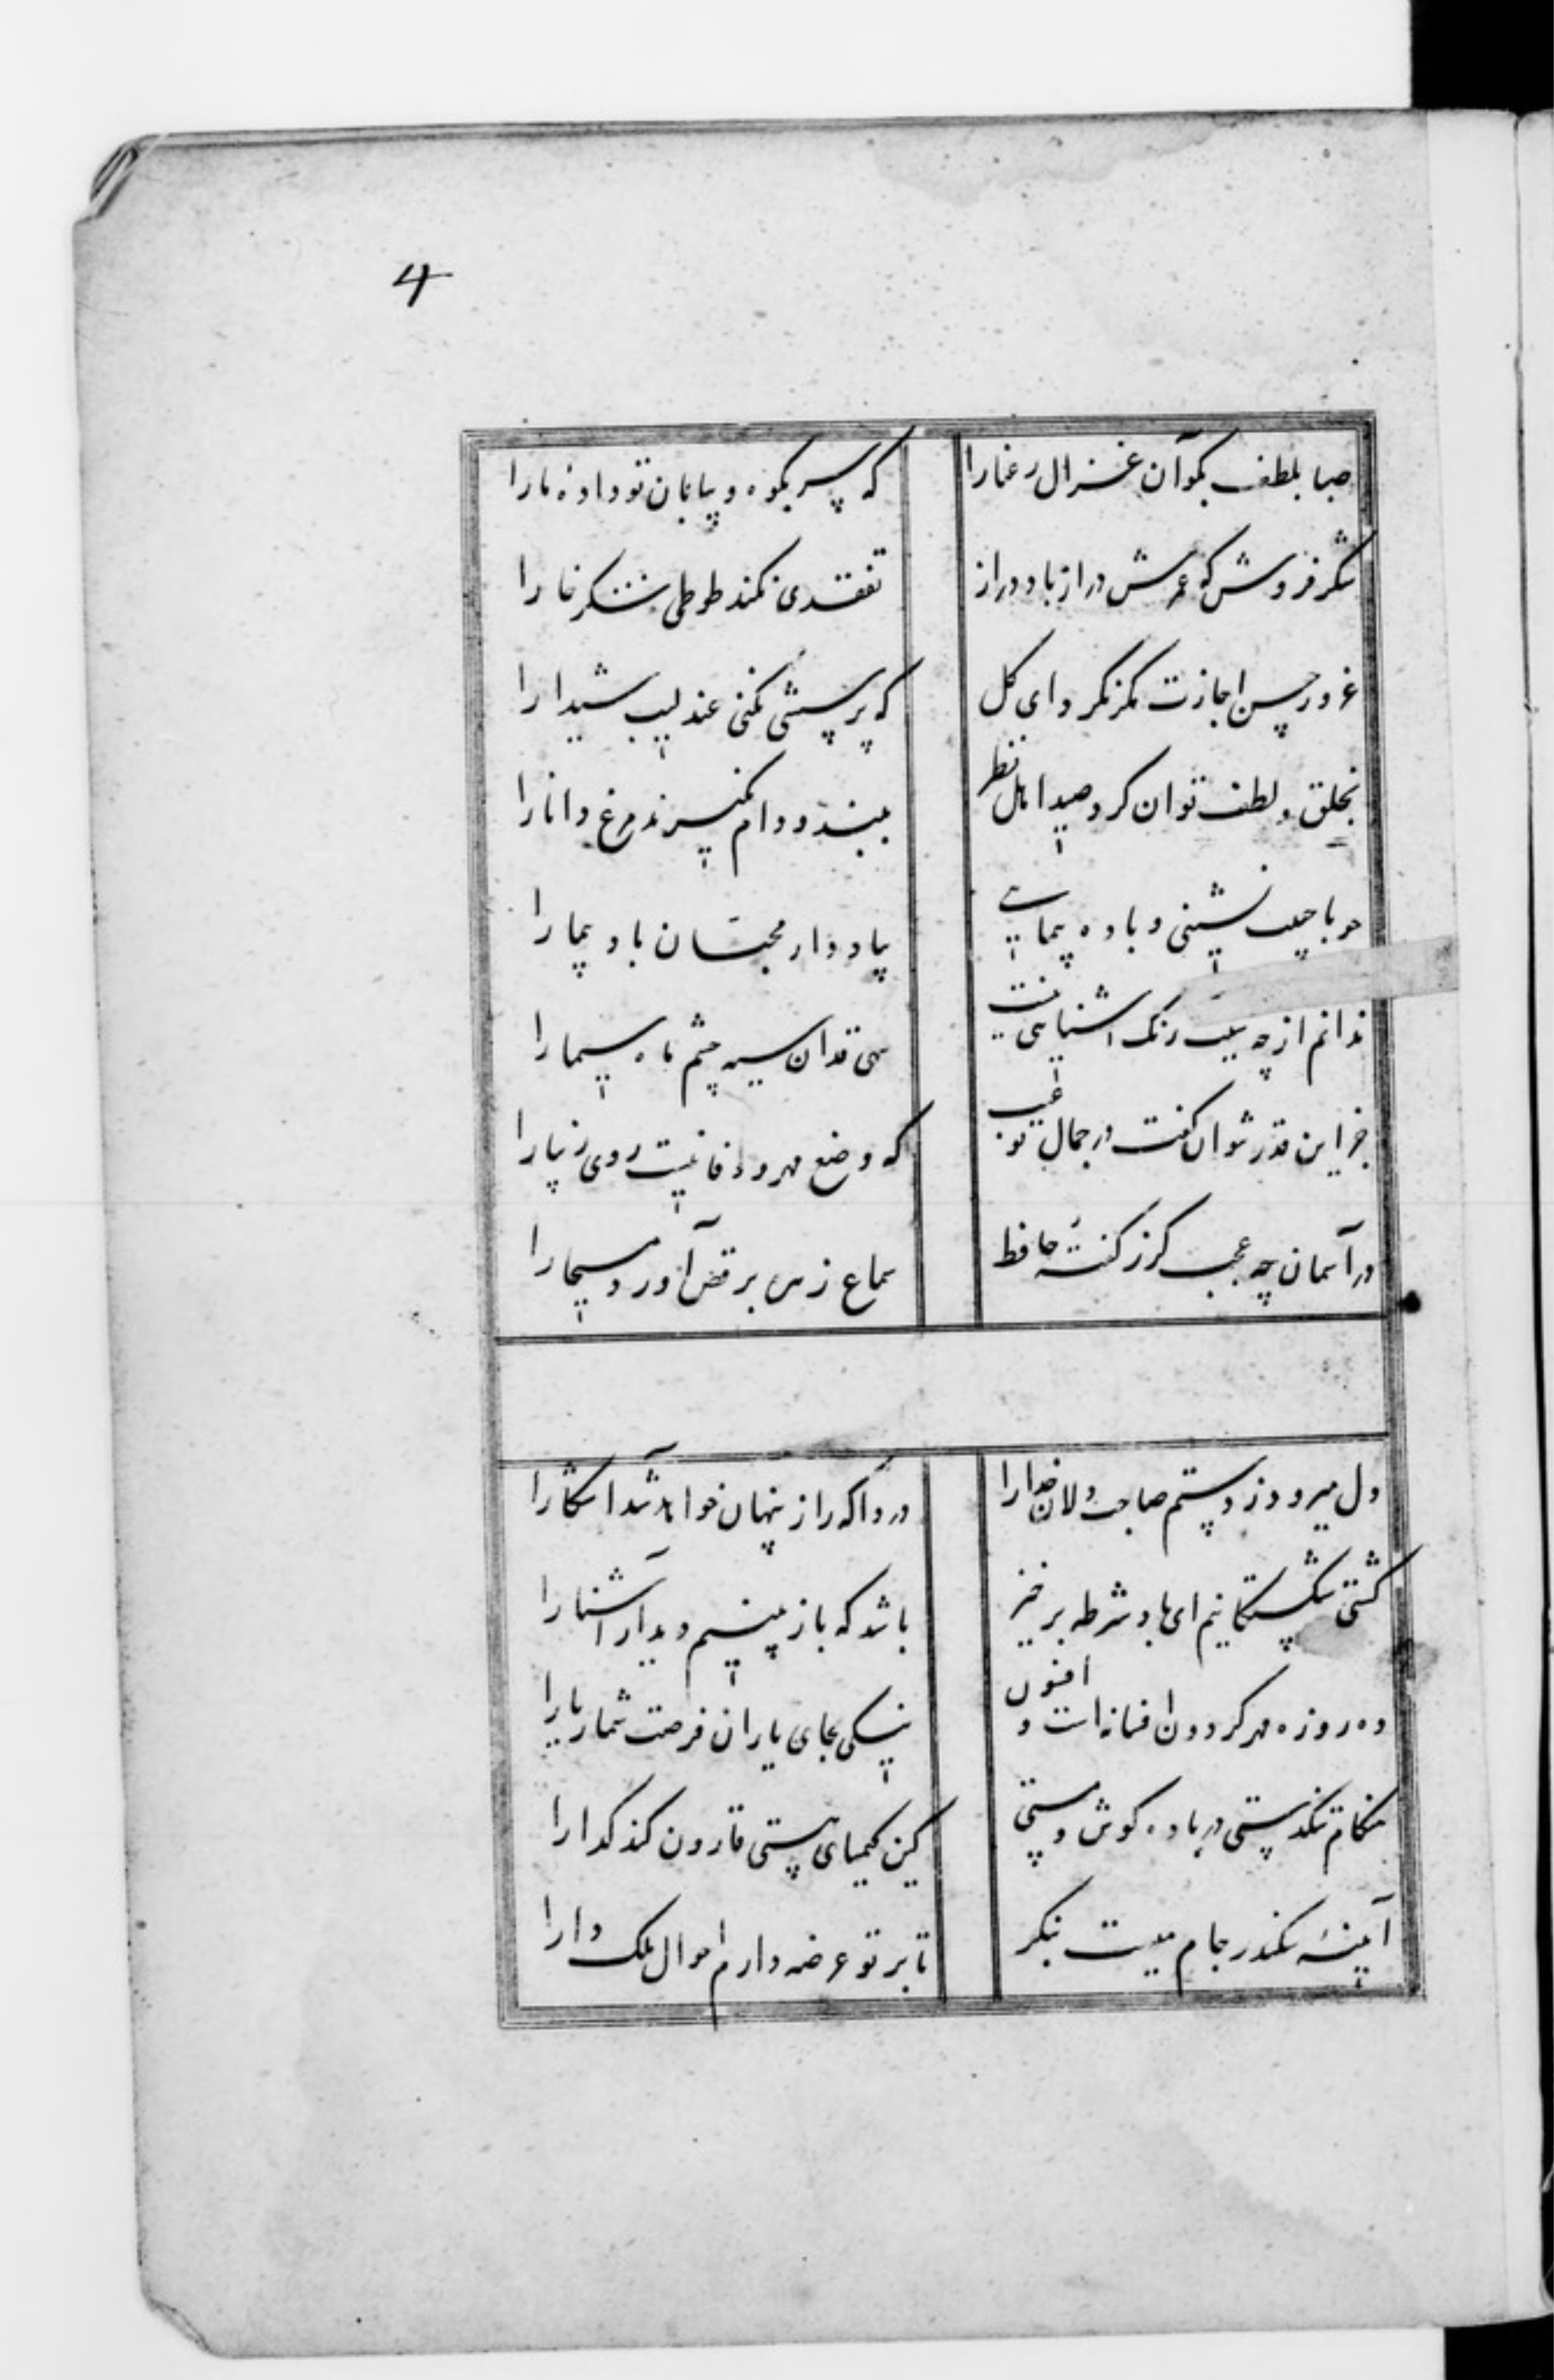 4
صبا بلطف بگو آن غزال رعنا را که سر بکوه و بیابان تو دادهٔ ما را
شکر فروش که عمرش دراز باد دراز تفقدی نکند طوطی شکرخا را
غرور حسن اجازت مگر نکرد ای کل که پرسشی نکنی عندلیب شیدا را
بخلق و لطف توان کرد صید اهل نظر ببند و دام نگیرند مرغ دانا را
چو با حبیب نشینی و باده پیمایی بیاد دار محبان باد پیما را
ندانم از چه سبب رنک اشنایی نیست سهی قدان سیه چشم ماه سیما را
جز این قدر نتوان گفت در جمال تو عیب که وضع مهر و وفا نیست روی زیبا را
در آسمان چه عجب گر ز گفتهٔ حافظ سماع زهره برقص آورد مسیحا را
دل میرود ز دستم صاحب دلان خدا را دردا که راز پنهان خواهد شد آشکارا
کشتی شکستگانیم ای باد شرطه برخیز باشد که باز بینیم دیدار آشنا را
ده روزه مهر کردون افسانه است و افسون نیکی بجای یاران فرصت شمار یارا
هنگام تنکدستی در باده کوش و مستی کین کیمیای هستی قارون کند کدا را
آیینهٔ سکندر جام میست بنکر تا بر تو عرضه دارم اموال ملک دارا